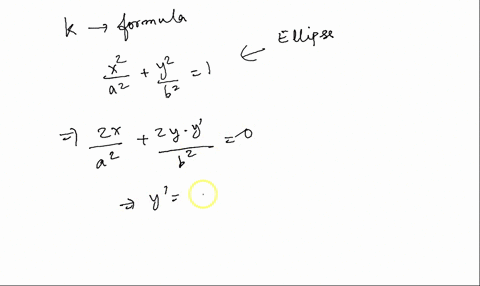 k → formula
x²/a² + y²/b² = 1 ← Ellipse
⇒ 2x/a² + 2y·y'/b² = 0
⇒ y' =